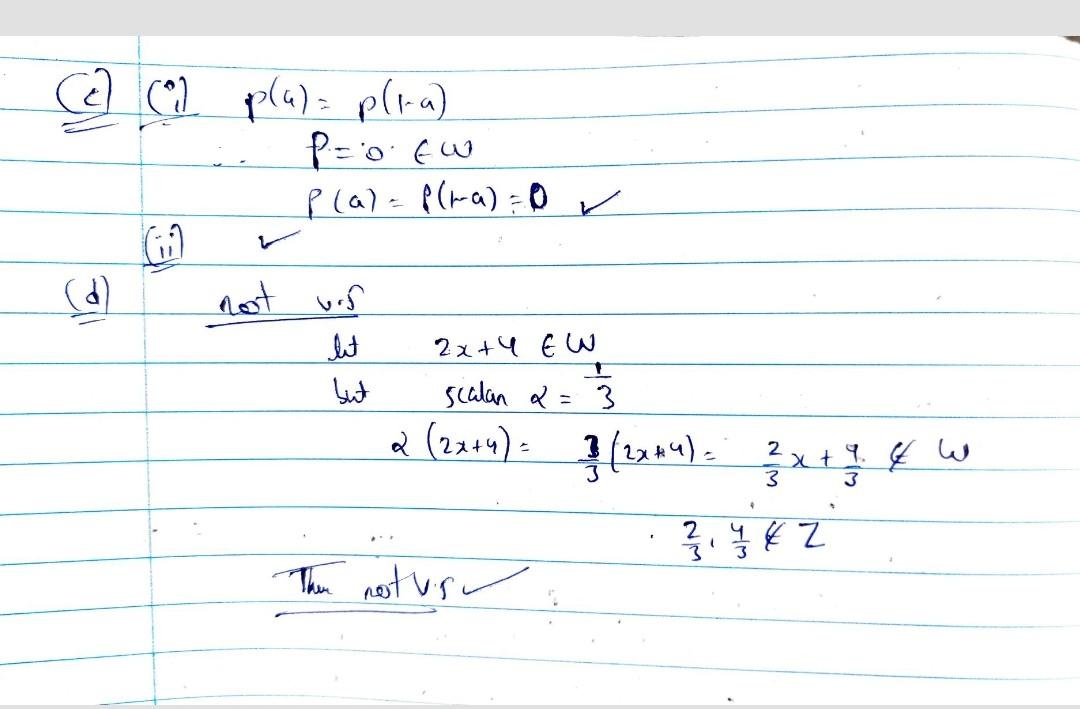 (c) (i) p(a) = p(1-a)
∴ P = 0 ∈ W
P(a) = P(1-a) = 0 ✓
(ii) ✓
(d) not v.s
let 2x+4 ∈ W
but scalar α = 1/3
α (2x+4) = 1/3 (2x+4) = 2/3 x + 4/3 ∉ W
∴ 2/3, 4/3 ∉ Z
Then not v.s ✓